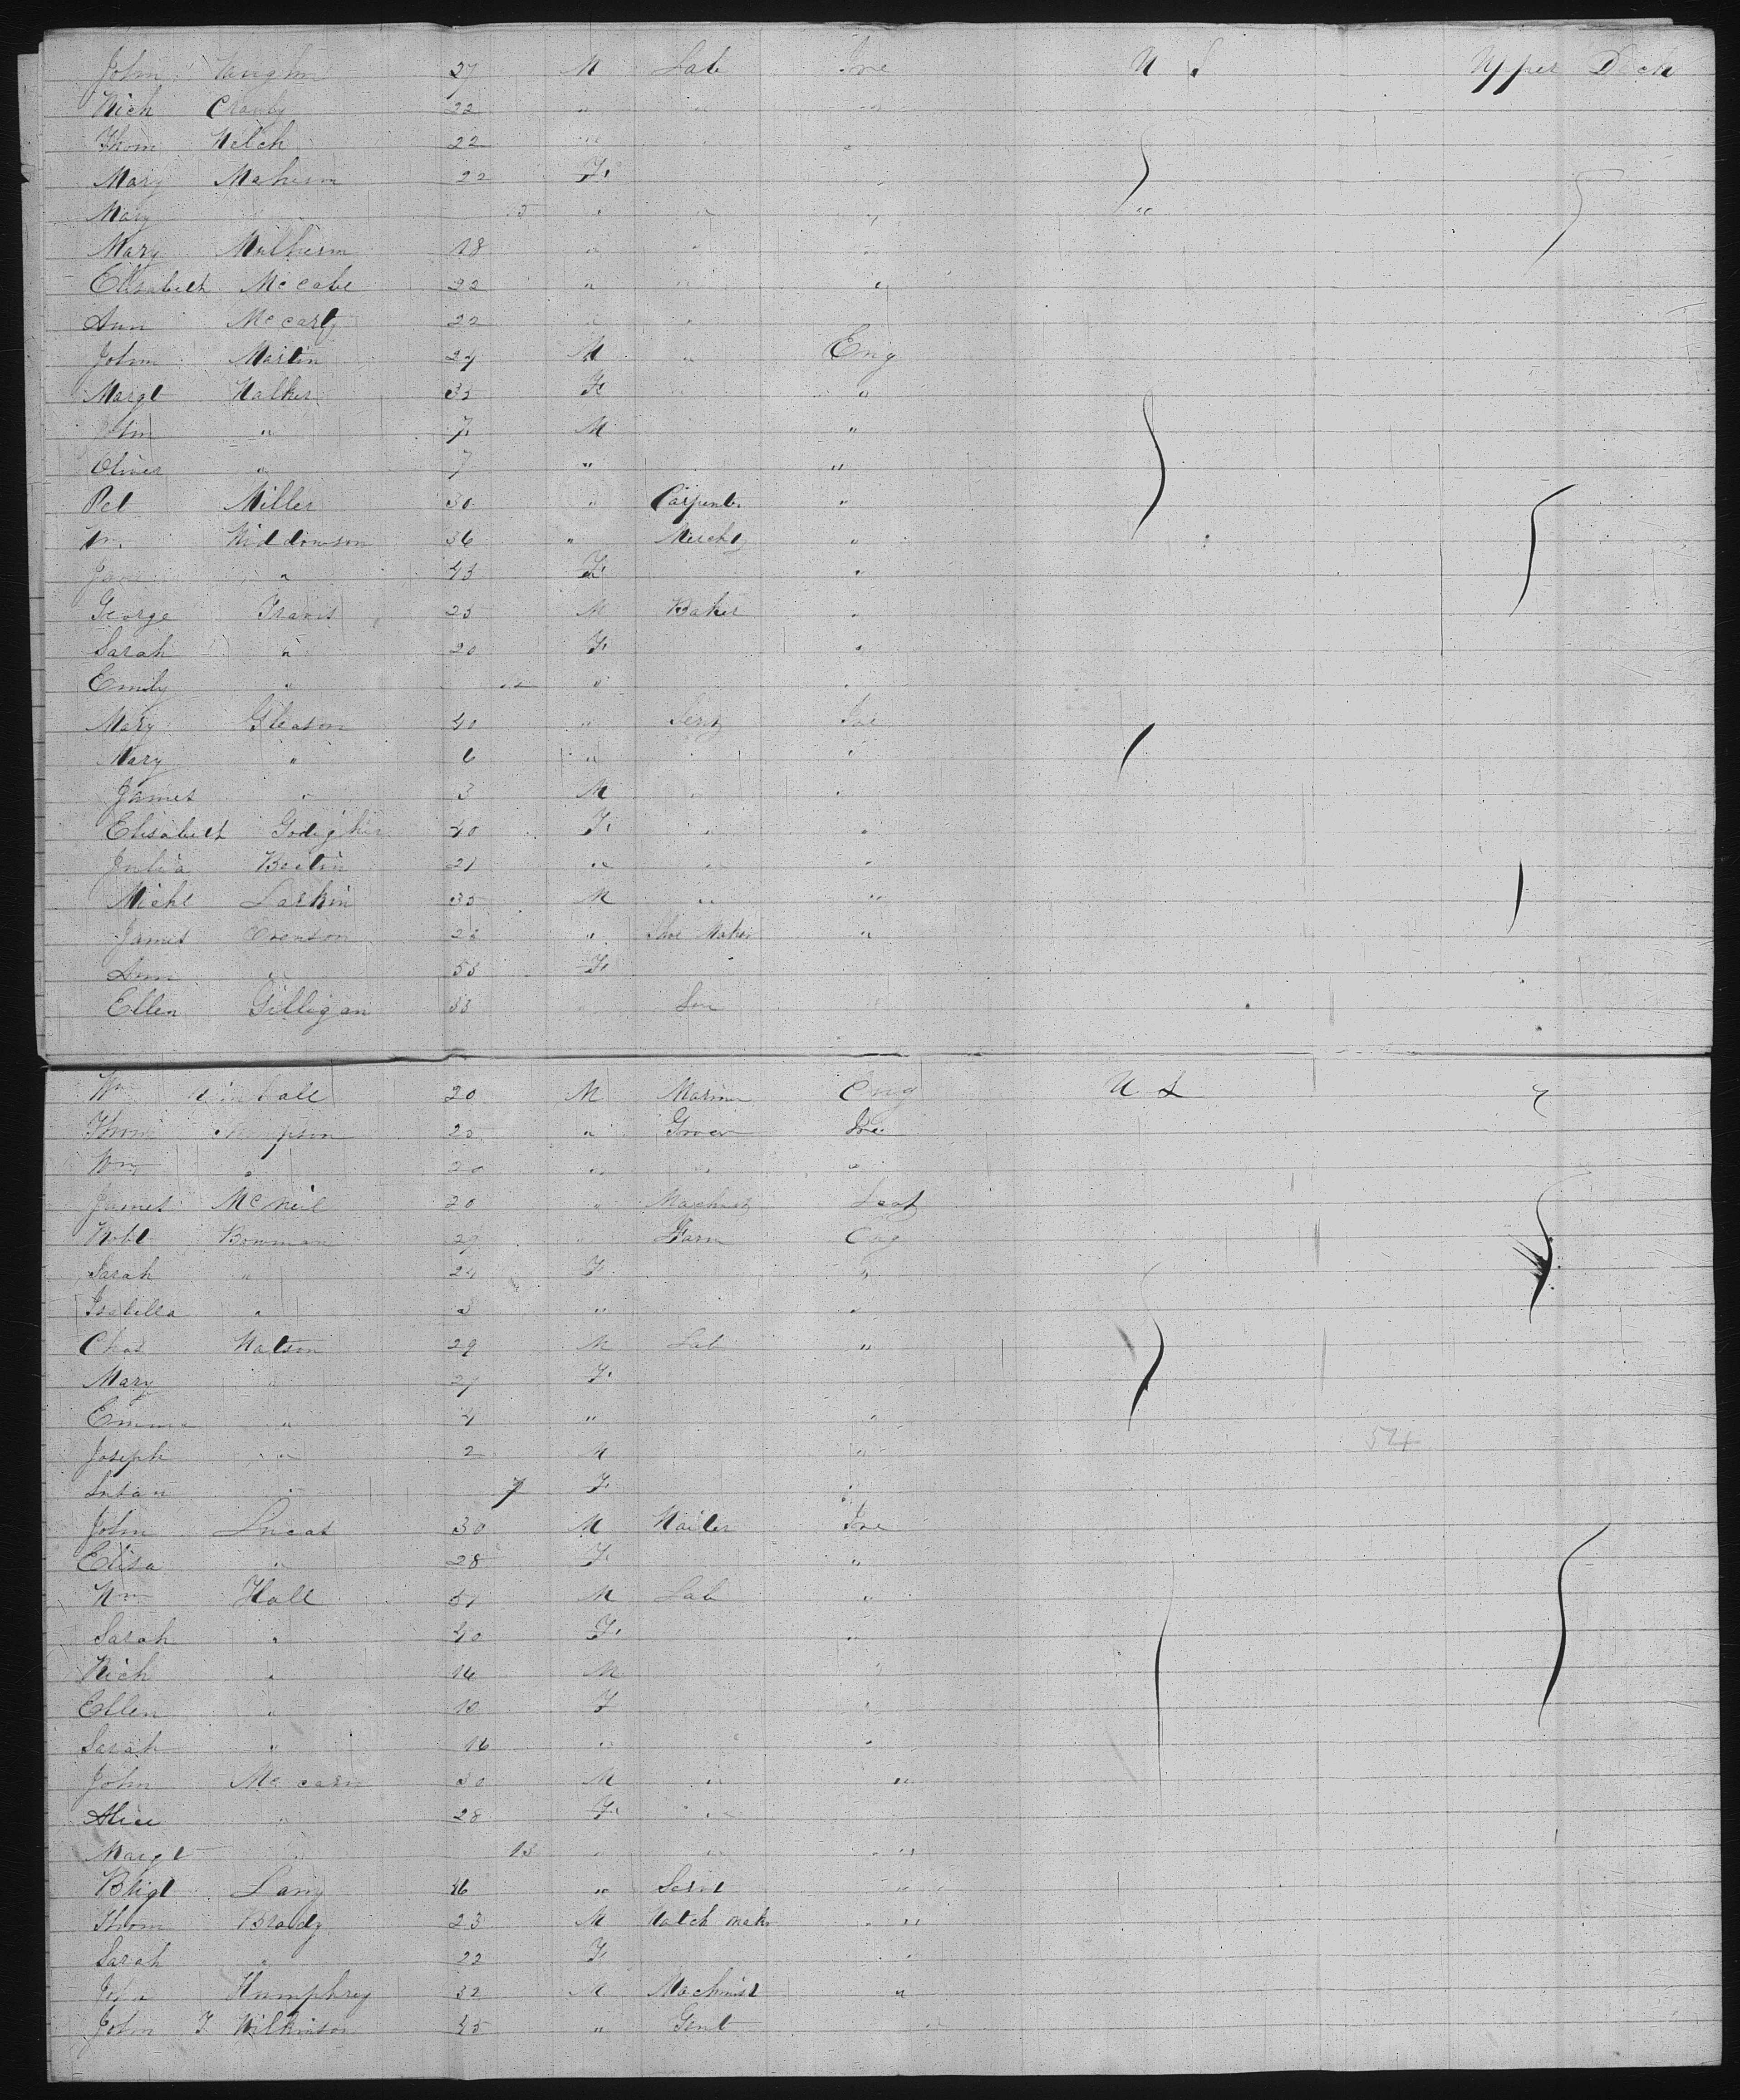 John Vaughn 27 M Lab Ire U S Upper Deck
Rich 22 " " "
Thom Welch 22 " "
Mary Mahern 22 F. "
Mary 15 " " " "
Mary Mulhern 18 " " "
Elisabeth McCabe 22 " " "
Ann McCarty 22 " "
John Martin 27 M " Eng
Margt Walker 35 F. "
John " 7 M "
Oliver " 7 " "
Pet Miller 30 " Carpent. "
Wm Widdowson 36 " Mercht "
Jane " 43 F. "
George Travis 25 M Baker "
Sarah " 20 F. "
Emily " 12 " "
Mary Gleason 40 " Servt Ire
Mary " 6 " "
James " 3 M " "
Elisabeth 40 F. " "
Julia 21 " " "
Michl Larkin 35 M " "
James 28 " Shoe Maker "
Ann " 55 F.
Ellen Gilligan 33 " Ser
Wm 20 M Mariner Eng U S "
Thom Thompson 25 " Grocer Ire
Wm " 20 " " "
James McNeil 20 " Machnt Scot
Robt Bowman 29 " Farm Eng
Sarah " 24 F. "
Isabella " 3 " "
Chas Watson 29 M Lab "
Mary " 27 F.
Emma " 4 " "
Joseph " 2 M " 54
Susan " 7 F. "
John Lucas 30 M Nailer Ire
Elisa " 28 F. "
Wm Hall 37 M Lab "
Sarah " 40 F. "
Rich " 14 M "
Ellen " 10 F "
Sarah " 16 " " "
John McCarn 30 M " "
Alice " 28 F. "
Margt " 13 " " "
Bligt Lang " Servt "
Thom Brody 23 M Watch mak. "
Sarah " 22 F. "
John Humphrey 32 M Machinist "
John F Wilkinson 45 " Gent "